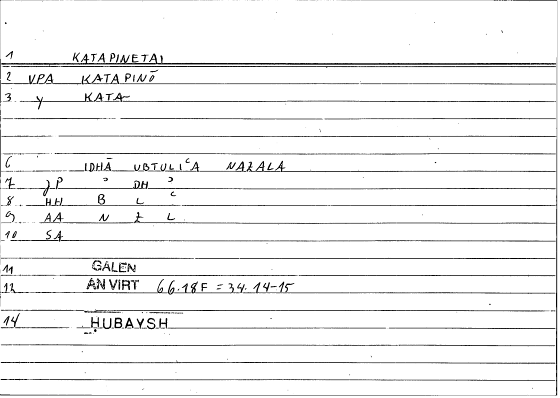 1 KATAPINETAI
2 VPA KATAPINŌ
3 y KATA-
6 IDHĀ UBTULIʿA NAZALA
7 JP ʾ DH ʾ
8 HH B L ʿ
9 AA N Z L
10 SA
11 GALEN
12 AN VIRT 66.18F = 34.14-15
14 HUBAYSH